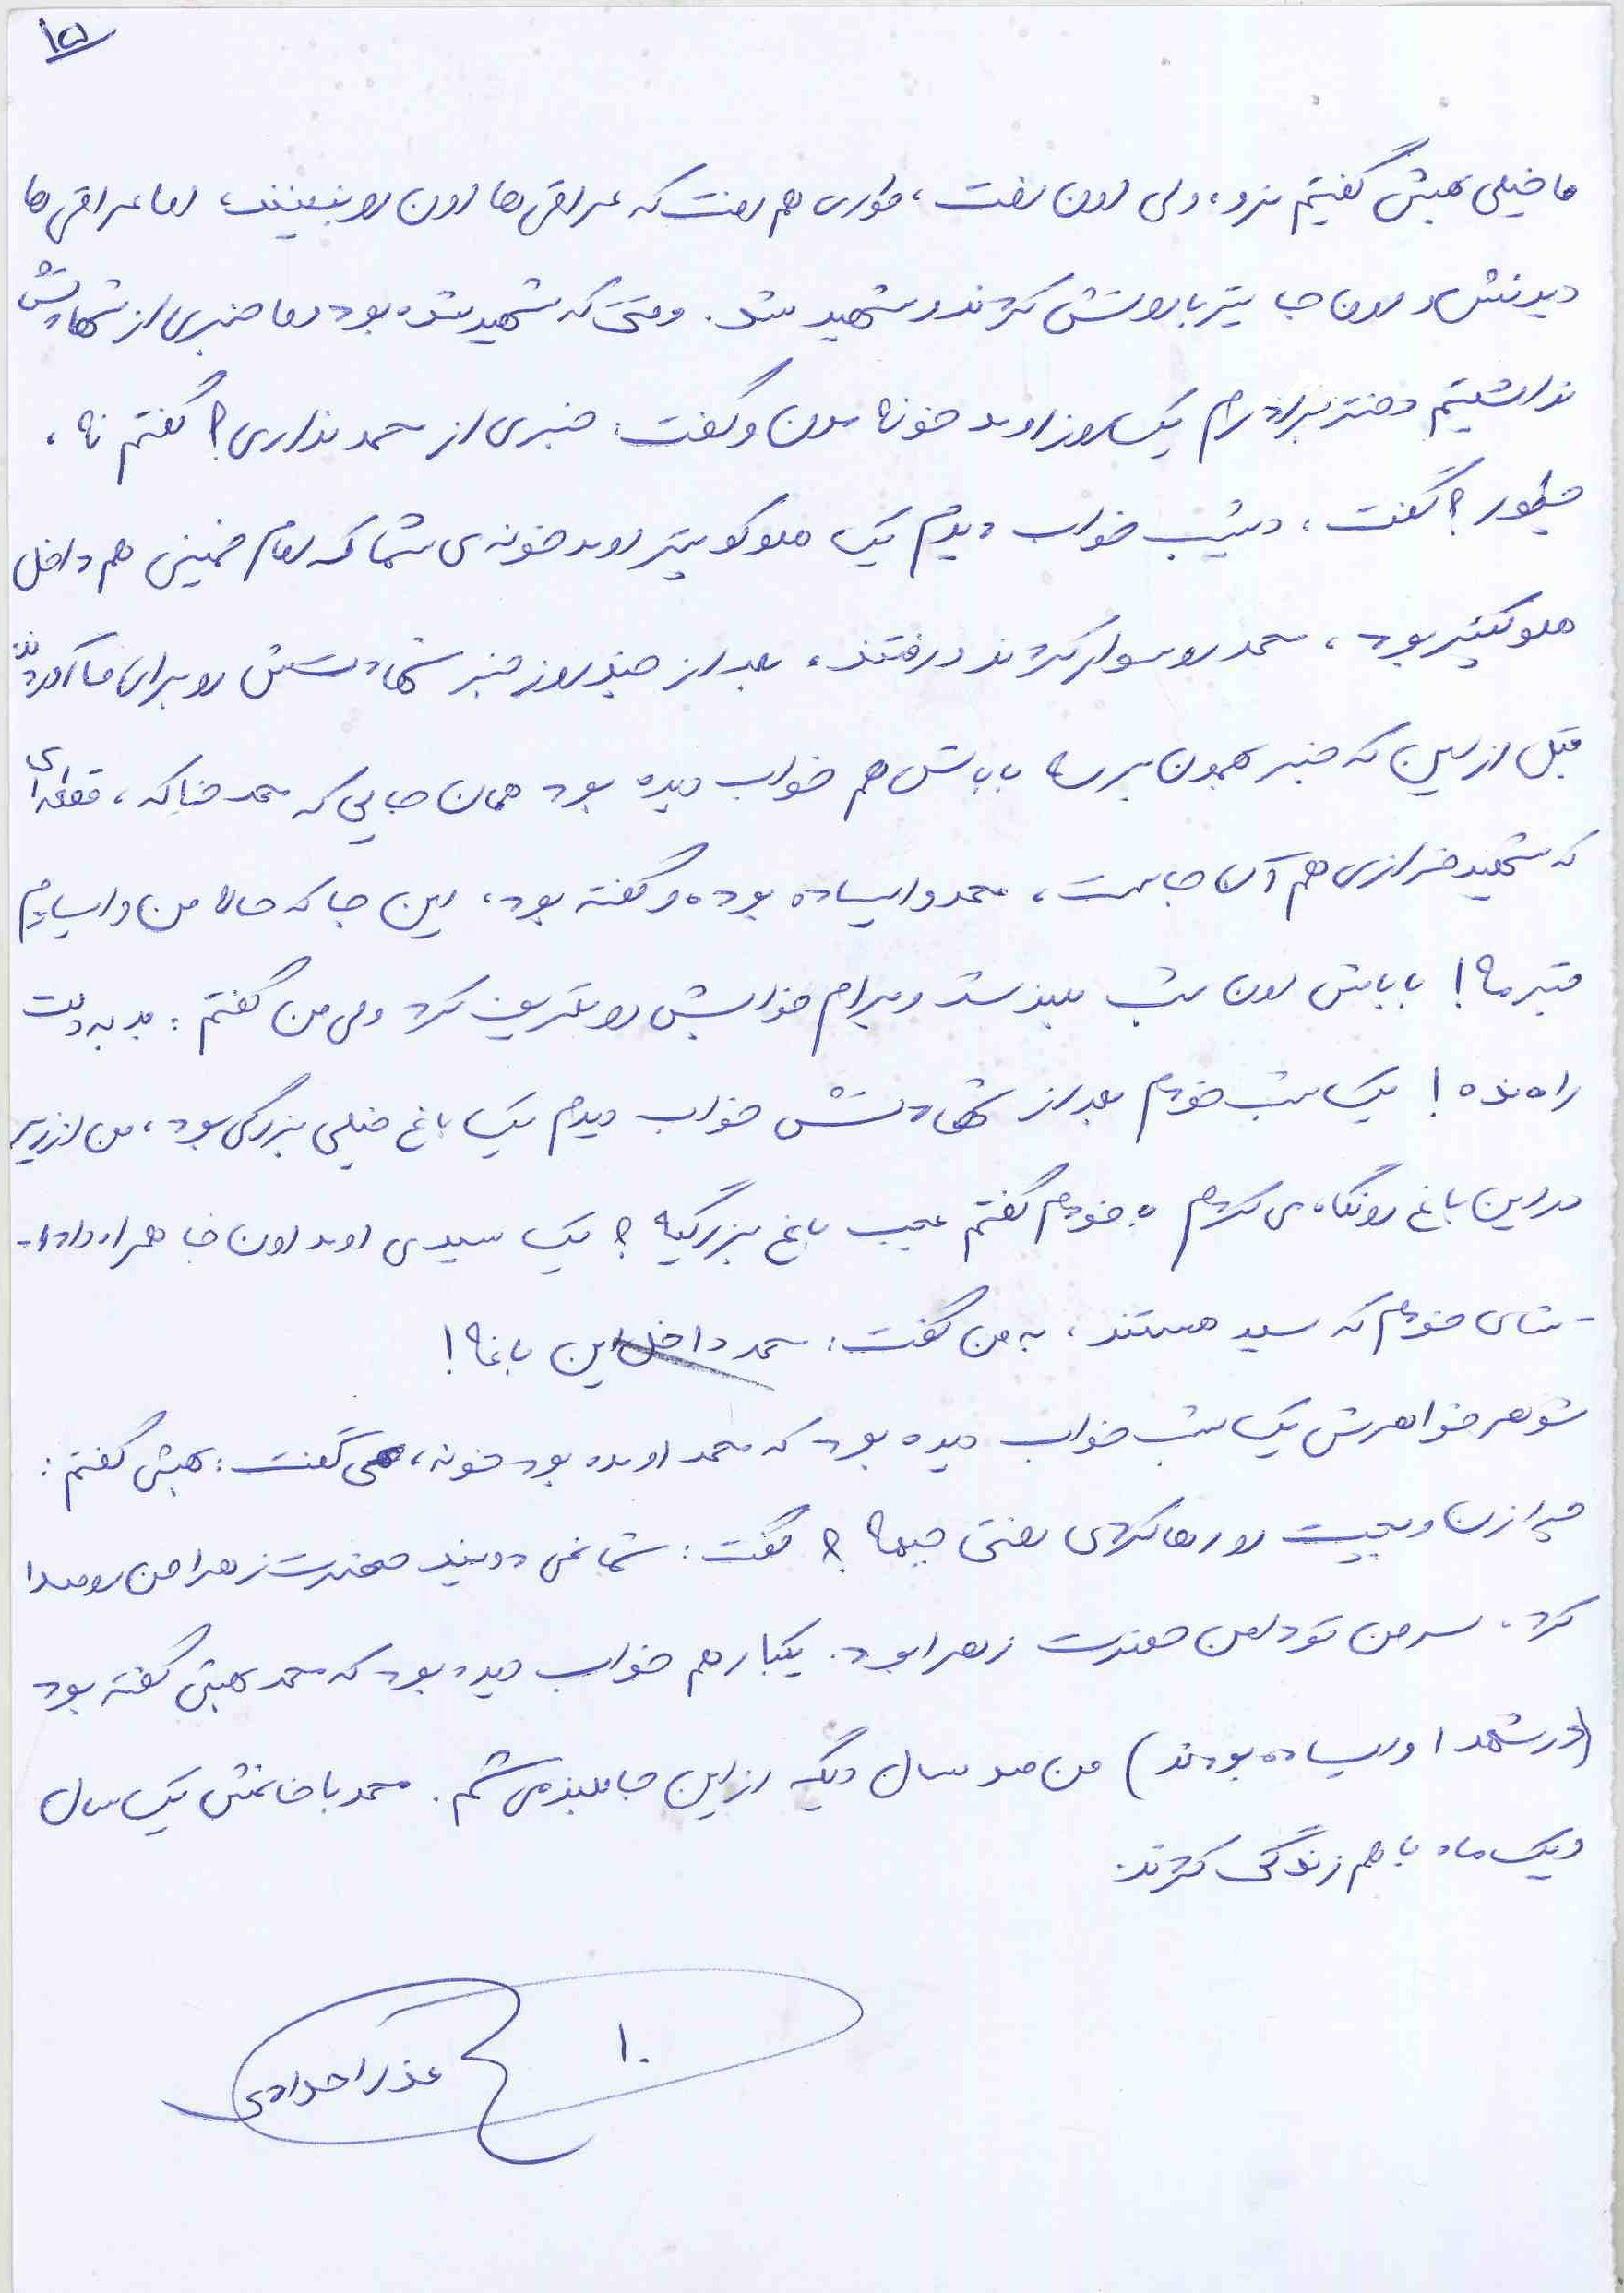 ۱۵
ما خیلی بهش گفتیم نرو، ولی اون رفت، طوری هم رفت که عراقی ها اون رو نبینند، اما عراقی ها
دیدنش و اون جا تیربارونش کردند و شهید شد. وقتی که شهید شده بود و ما خبری از شهادتش
نداشتیم دختر برادرم یک روز اومد خونه مون و گفت: خبری از محمد نداری؟ گفتم نه،
چطور؟ گفت، دیشب خواب دیدم یک هلوکوپتر اومد خونه ی شما که امام خمینی هم داخل
هلوکپتر بود، محمد رو سوار کردند و رفتند، بعد از چند روز خبر شهادتش رو برای ما آوردند
قبل از این که خبر بهمون برسه باباش هم خواب دیده بود همان جایی که محمد خاکه، قطعه ای
که شهید خرازی هم آن جاست، محمد وایساده بوده و گفته بود، این جا که حالا من وایسادم
قبر ماه! باباش اون شب بلند شد و برام خوابش رو تعریف کرد ولی من گفتم: بد به دلت
راه نده! یک شب خودم بعد از شهادتش خواب دیدم یک باغ خیلی بزرگی بود، من از زیر
در این باغ رو نگاه می کردم و به خودم گفتم عجب باغ بزرگیه؟ یک سیدی اومد اون جا همراه دادا-
-شای خودم که سید هستند، به من گفت: محمد داخل این باغه!
شوهر خواهرش یک شب خواب دیده بود که محمد اومده بود خونه، می گفت: بهش گفتم:
چرا زن و بچت رو رها کردی رفتی جبهه؟ گفت: شما نمی دونید حضرت زهرا من رو صدا
کرد. سر من تو دامن حضرت زهرا بود. یکبار هم خواب دیده بود که محمد بهش گفته بود
(در شهدا وایساده بودند) من صد سال دیگه از این جا بلند می شم. محمد با خانمش یک سال
و یک ماه با هم زندگی کردند.
۱۰
عذرا حدادی